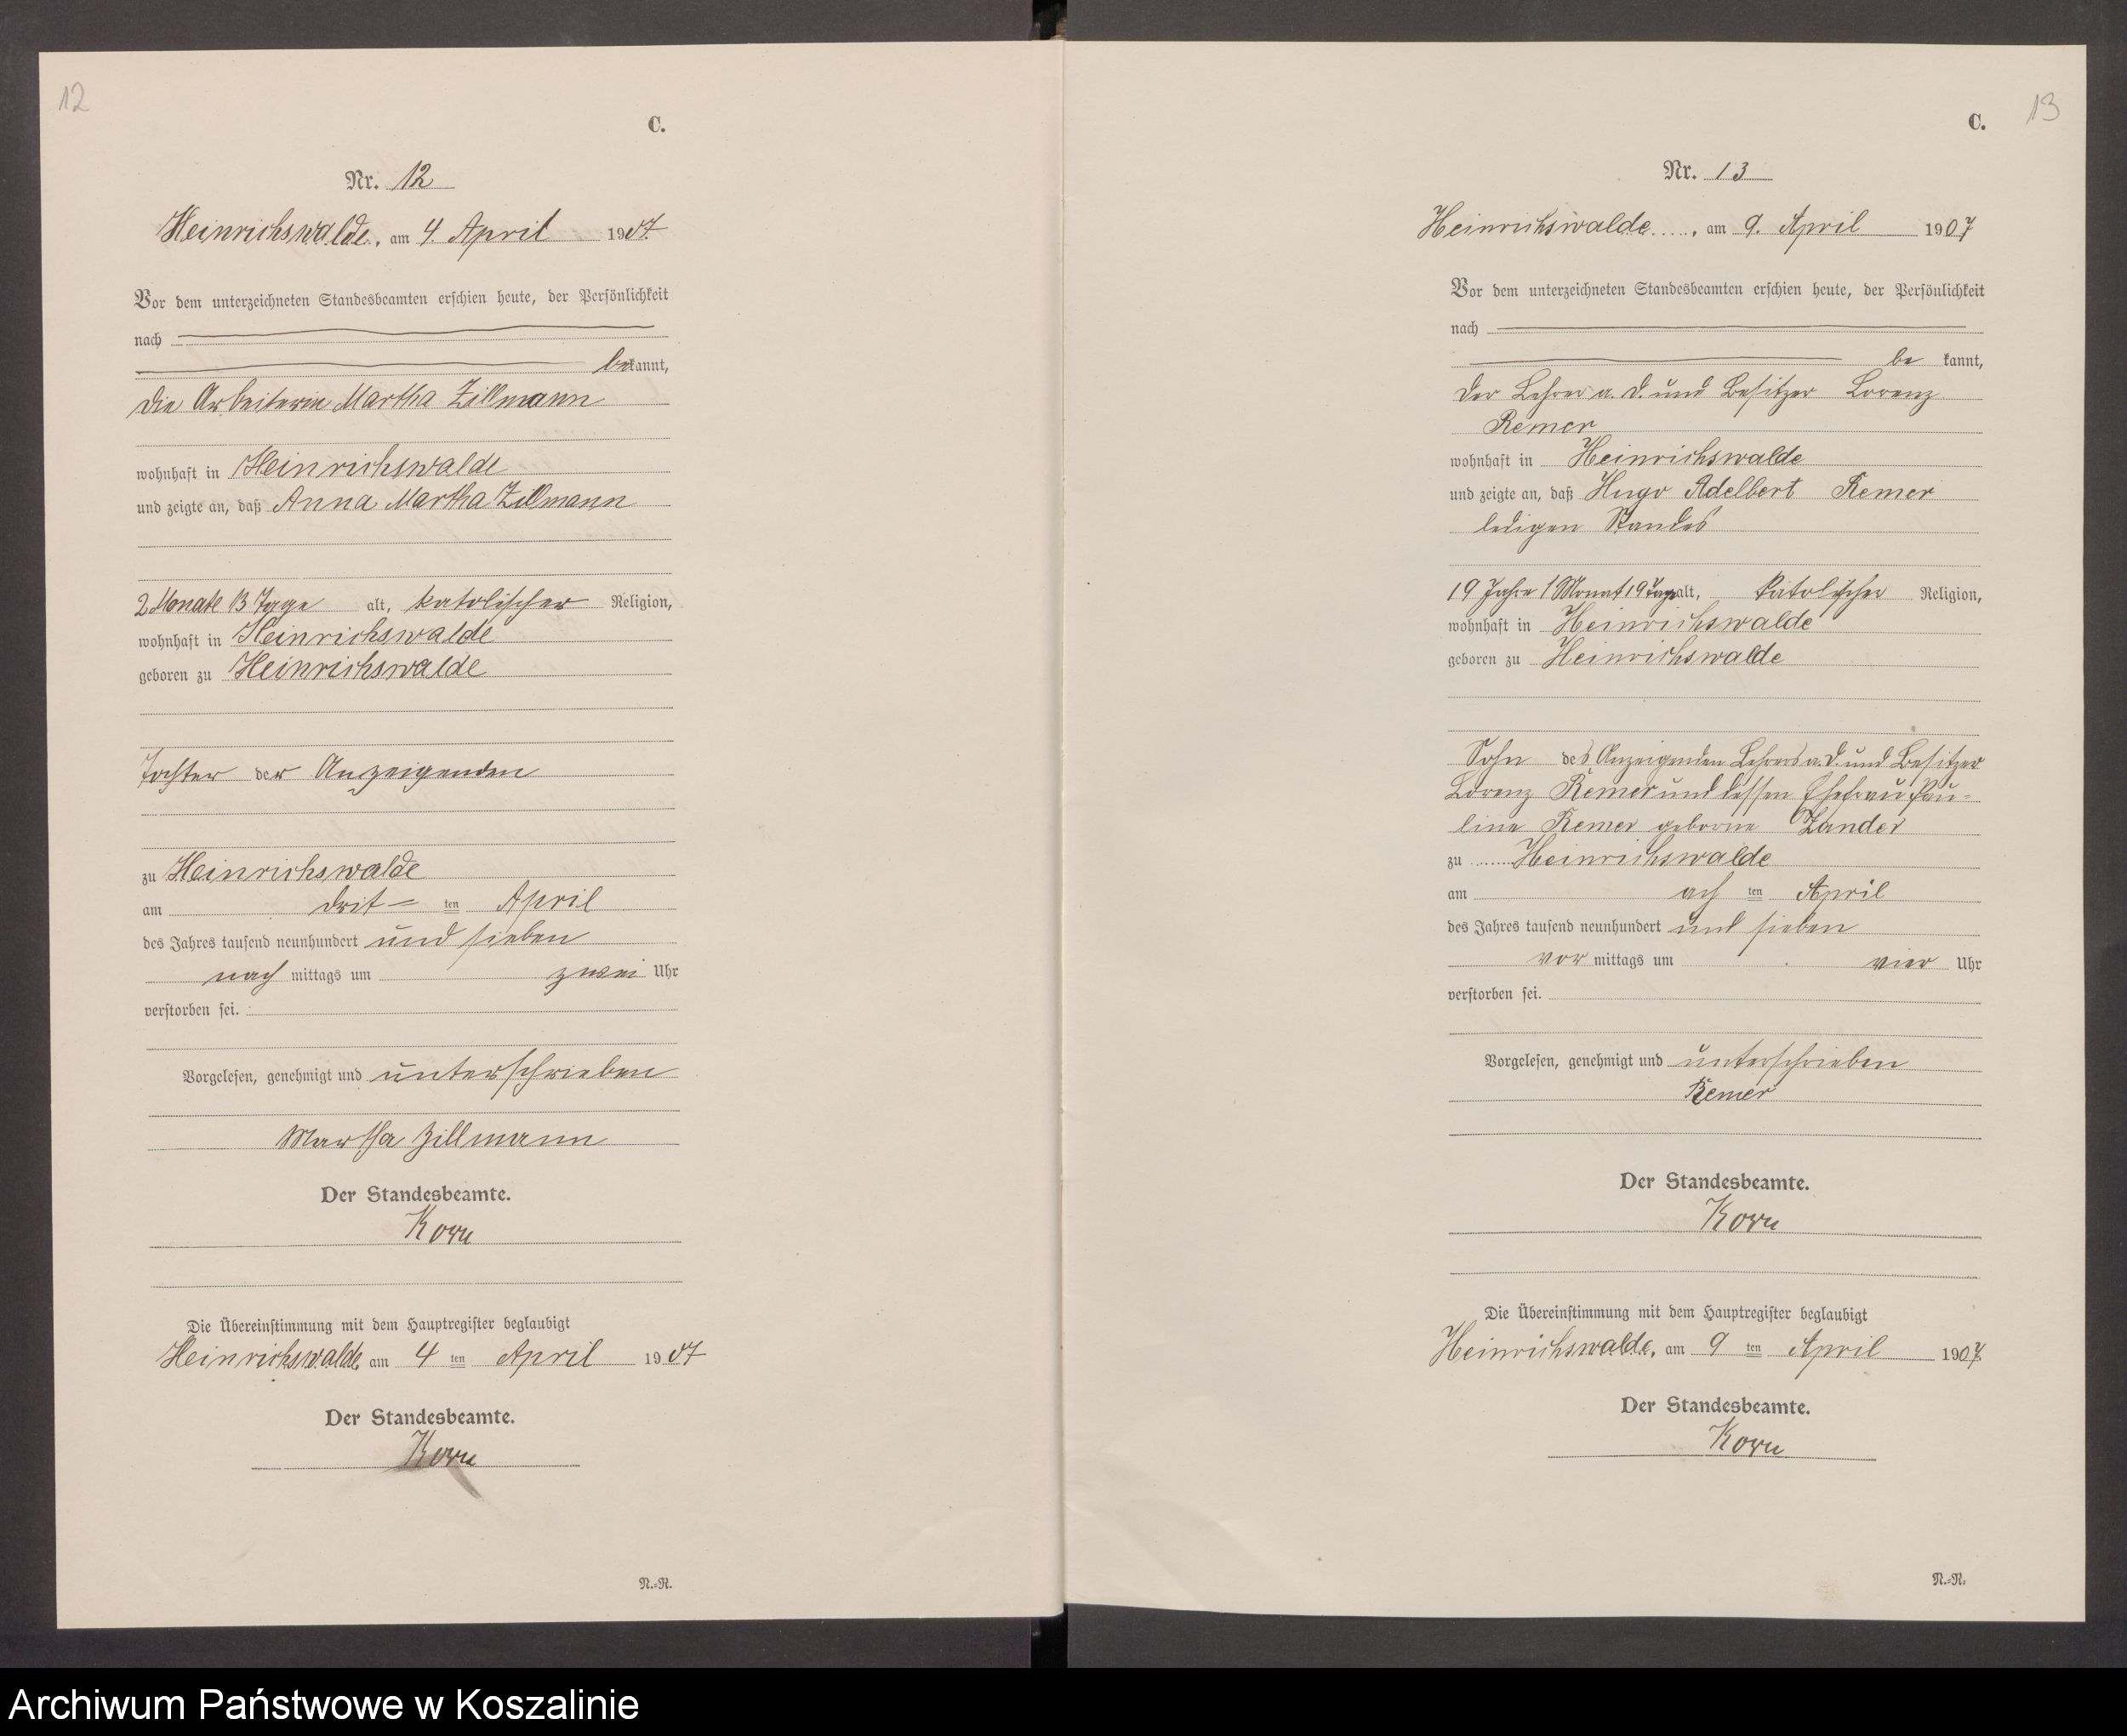 12
C.
Nr. 12
Heinrichswalde, am 4. April 1907.
Vor dem unterzeichneten Standesbeamten erschien heute, der Persönlichkeit
nach
bekannt,
die Arbeiterin Martha Zillmann
wohnhaft in Heinrichswalde
und zeigte an, daß Anna Martha Zillmann
2 Monate 13 Tage alt, katolischer Religion,
wohnhaft in Heinrichswalde
geboren zu Heinrichswalde
Tochter der Anzeigenden
zu Heinrichswalde
am drit= ten April
des Jahres tausend neunhundert und sieben
nach mittags um zwei Uhr
verstorben sei.
Vorgelesen, genehmigt und unterschrieben
Martha Zillmann
Der Standesbeamte.
Korn
Die Übereinstimmung mit dem Hauptregister beglaubigt
Heinrichswalde, am 4 ten April 1907
Der Standesbeamte.
Korn
N.=N.
13
C.
Nr. 13
Heinrichswalde, am 9. April 1907
Vor dem unterzeichneten Standesbeamten erschien heute, der Persönlichkeit
nach
be kannt,
der Lehrer a. D. und Besitzer Lorenz
Remer
wohnhaft in Heinrichswalde
und zeigte an, daß Hugo Adelbert Remer
ledigen Standes
19 Jahre 1 Monat 19 Tage alt, katolischer Religion,
wohnhaft in Heinrichswalde
geboren zu Heinrichswalde
Sohn des Anzeigenden Lehrers a. D. und Besitzer
Lorenz Remer und dessen Ehefrau Pau=
line Remer geborne Zander
zu Heinrichswalde
am ach ten April
des Jahres tausend neunhundert und sieben
vor mittags um vier Uhr
verstorben sei.
Vorgelesen, genehmigt und unterschrieben
Remer
Der Standesbeamte.
Korn
Die Übereinstimmung mit dem Hauptregister beglaubigt
Heinrichswalde, am 9 ten April 1907.
Der Standesbeamte.
Korn
N.=N.
Archiwum Państwowe w Koszalinie